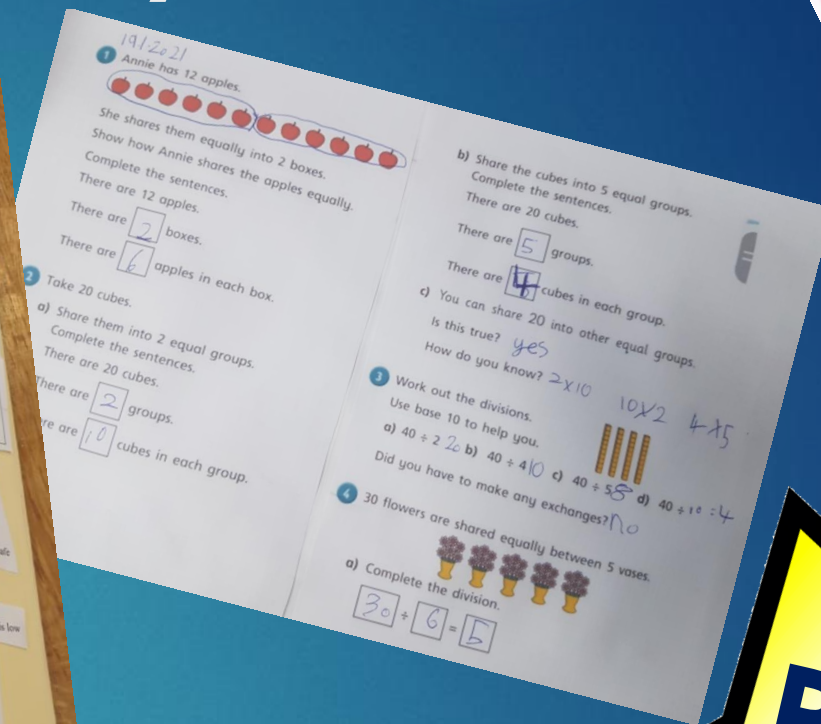 191-2021
1 Annie has 12 apples.
She shares them equally into 2 boxes.
Show how Annie shares the apples equally.
Complete the sentences.
There are 12 apples.
There are 2 boxes.
There are 6 apples in each box.
2 Take 20 cubes.
a) Share them into 2 equal groups.
Complete the sentences.
There are 20 cubes.
There are 2 groups.
re are 10 cubes in each group.
b) Share the cubes into 5 equal groups.
Complete the sentences.
There are 20 cubes.
There are 5 groups.
There are 4 cubes in each group.
c) You can share 20 into other equal groups.
Is this true? yes
How do you know? 2x10 10x2 4x5
3 Work out the divisions.
Use base 10 to help you.
a) 40 ÷ 2 20 b) 40 ÷ 4 10 c) 40 ÷ 5 8 d) 40 ÷ 10 = 4
Did you have to make any exchanges? no
4 30 flowers are shared equally between 5 vases.
a) Complete the division.
30 ÷ 6 = 5
s low